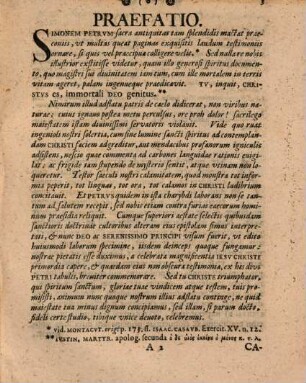 PRAEFATIO.
SIMONEM PETRVM sacra antiquitas tam splendidis mactat prae-
coniis, vt multas queat paginas exquisitis laudum testimoniis
ornare, si quis vel praecipua colligere velit. Sed nulla re nobis
illustrior exstitisse videtur, quam illo generosi spiritus documen-
to, quo magistri sui diuinitatem iam tum, cum ille mortalem in terris
vitam ageret, palam ingenueque praedicauit. TV, inquit, CHRI-
STVS es, immortali DEO genitus.**
Nimirum illud adflatu patris de caelo didicerat, non viribus
naturae: cuius ignauo postea metu perculsus, ore proh dolor! sacrilego
mirificam istam diuinissimi seruatoris violauit. Vide quo ruat
ingenii nostri solertia, cum sine lumine sancti spiritus ad contemplan-
dam CHRISTI faciem adgreditur, aut mendacibus profanorum igniculis
adsistens, nescio quae commenta ad carbones languidae rationis exigi-
lat; ac frigide tam stupenda de mysteria sentit, atque vtinam non lo-
queretur. Testor saeculi nostri calamitatem, quod monstra tot infor-
mia peperit, tot linguas, tot ora, tot calamos in CHRISTI ludibrium
concitauit. Et PETRVS quidem in ista chorybdi laborans non se tan-
tum ad salutem recepit, sed nobis etiam contra furias errorum homi-
num praesidia reliquit. Cumque superiori aestate selectis quibusdam
sanctioris doctrinae cultoribus alteram eius epistolam sinus interpre-
tari, & nunc DEO ac SERENISSIMO PRINCIPI visum fuerit, vt edito
huiusmodi laborum specimine, iisdem deinceps quoque fungamur:
nostrae pietatis esse duximus, a celebrata magnificentia IESV CHRISTI
primordia capere, & quaedam eius non obscura testimonia, ex his diui
PETRI tabulis, breuiter commemorare. Sed tu CHRISTE triumphator,
qui spiritum sanctum, gloriae tuae vindicem atque testem, tuis pro-
misisti, annue nunc quoque nostrum illius adflatu contingere, ne quid
maiestate tua minus dignum concipiamus, sed illam, si parum docto,
fideli certe studio, tibique vnice deuoto, celebremus.
* vid. MONTACVT. origg. p. 175. it. ISAAC. CASAVB. Exercit. XV. n. 12.
** IVSTIN, MARTYR. apolog. secunda
A 2 CA-